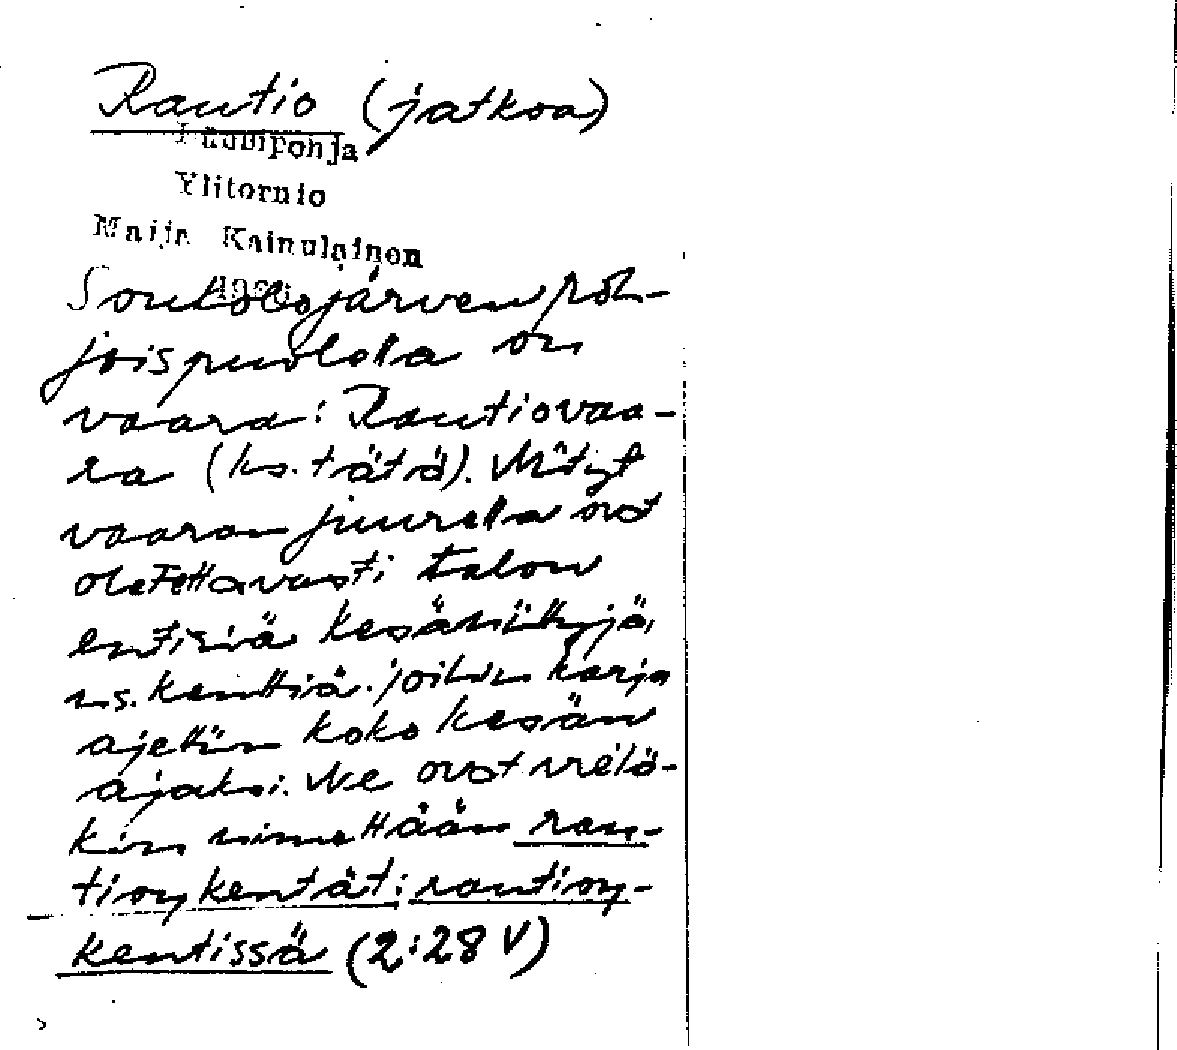 Rautio (jatkoa)
Ylitornio
Maija Kainulainen
Soukolojärven poh-
joispuolella on
vaara: Rautiovaa-
ra (ks. tätä). Nityt
vaaran juurella ovat
oletettavasti talon
entisiä kesäniittyjä,
ns. kenttiä. joihin karja
ajettiin koko kesän
ajaksi. Ne ovat vielä-
kin nimeltään rau-
tioŋ kentät: rautioŋ-
kentissä (2:28 V)